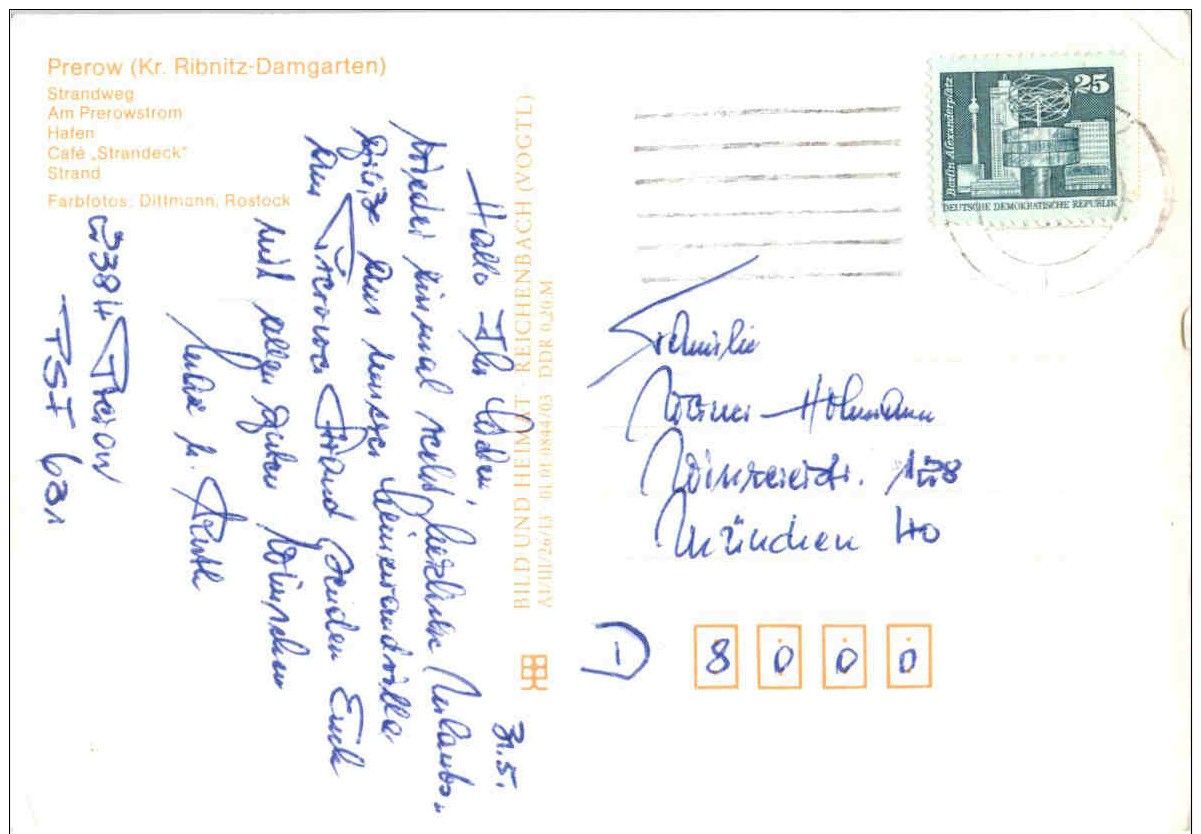 Prerow (Kr. Ribnitz-Damgarten)
Strandweg
Am Prerowstrom
Hafen
Café „Strandeck"
Strand
Farbfotos: Dittmann, Rostock
BILD UND HEIMAT · REICHENBACH (VOGTL)
A1/III/26/13 01 01 0844/03 DDR 0,20 M
31.5.
Hallo Ihr Lieben,
Wieder einmal recht herzliche Urlaubs-
grüße aus unserer Leinwandvilla
am Prerower Strand senden Euch
mit allen guten Wünschen
u. Ruth
2384 Prerow
PSF
25
Berlin Alexanderplatz
DEUTSCHE DEMOKRATISCHE REPUBLIK
Familie
Werner Hohmann
Winzererstr. 128
München 40
D - 8000